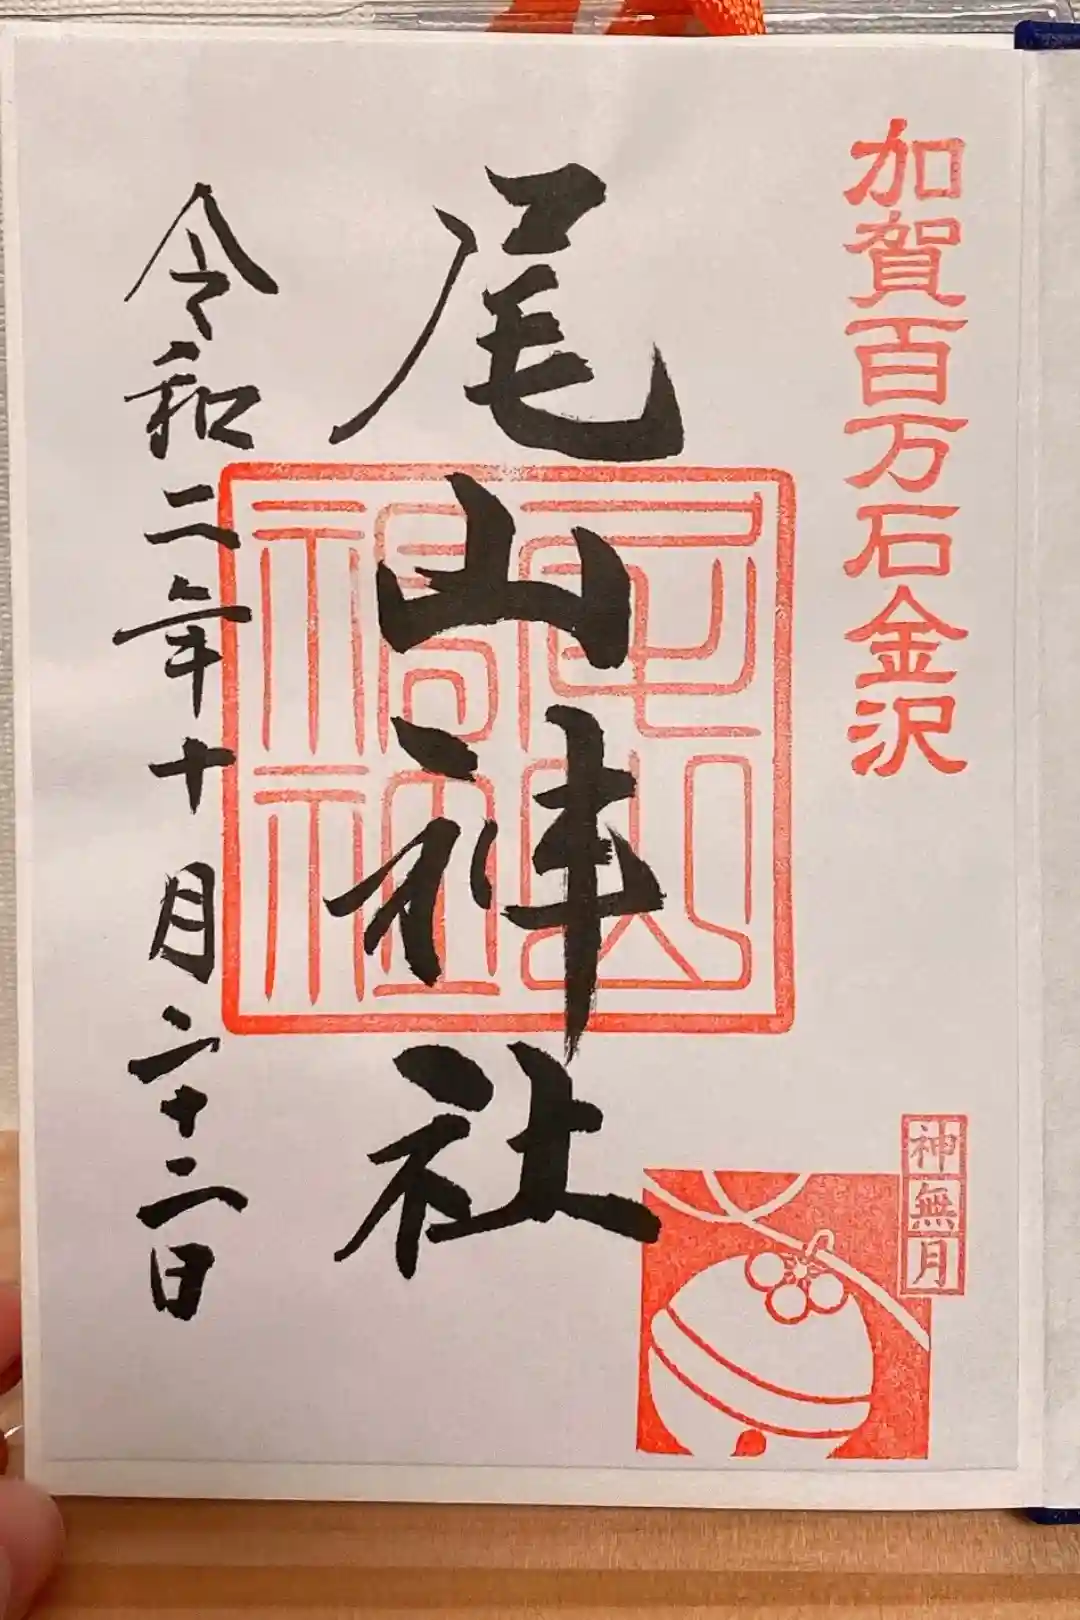 加賀百万石金沢
神無月
尾山神社
尾山神社
令和二年十月二十二日